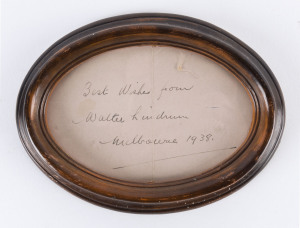 Best Wishes from
Walter Lindrum
Melbourne 1938.